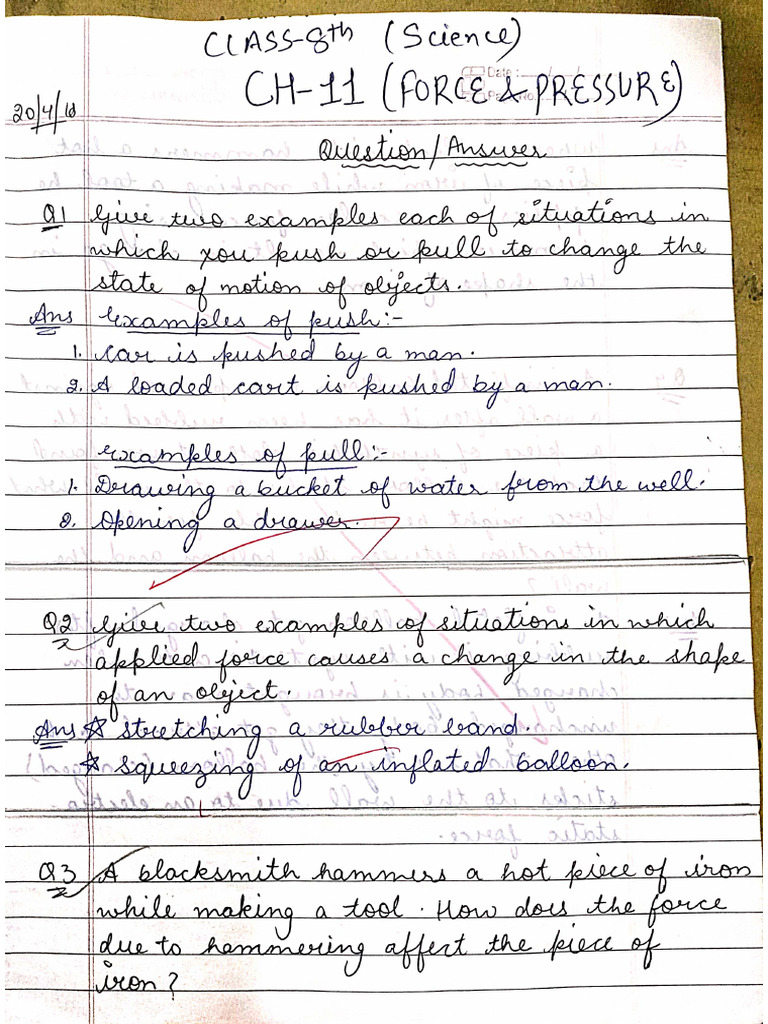 CLASS-8th (Science)
CH-11 (FORCE & PRESSURE)
20/4/18
Question/Answer
Q1 Give two examples each of situations in
which you push or pull to change the
state of motion of objects.
Ans Examples of push:-
1. Car is pushed by a man.
2. A loaded cart is pushed by a man.
Examples of pull:-
1. Drawing a bucket of water from the well.
2. Opening a drawer.
Q2 Give two examples of situations in which
applied force causes a change in the shape
of an object.
Ans ☆ Stretching a rubber band.
☆ Squeezing of an inflated balloon.
Q3 A blacksmith hammers a hot piece of iron
while making a tool. How does the force
due to hammering affect the piece of
iron?